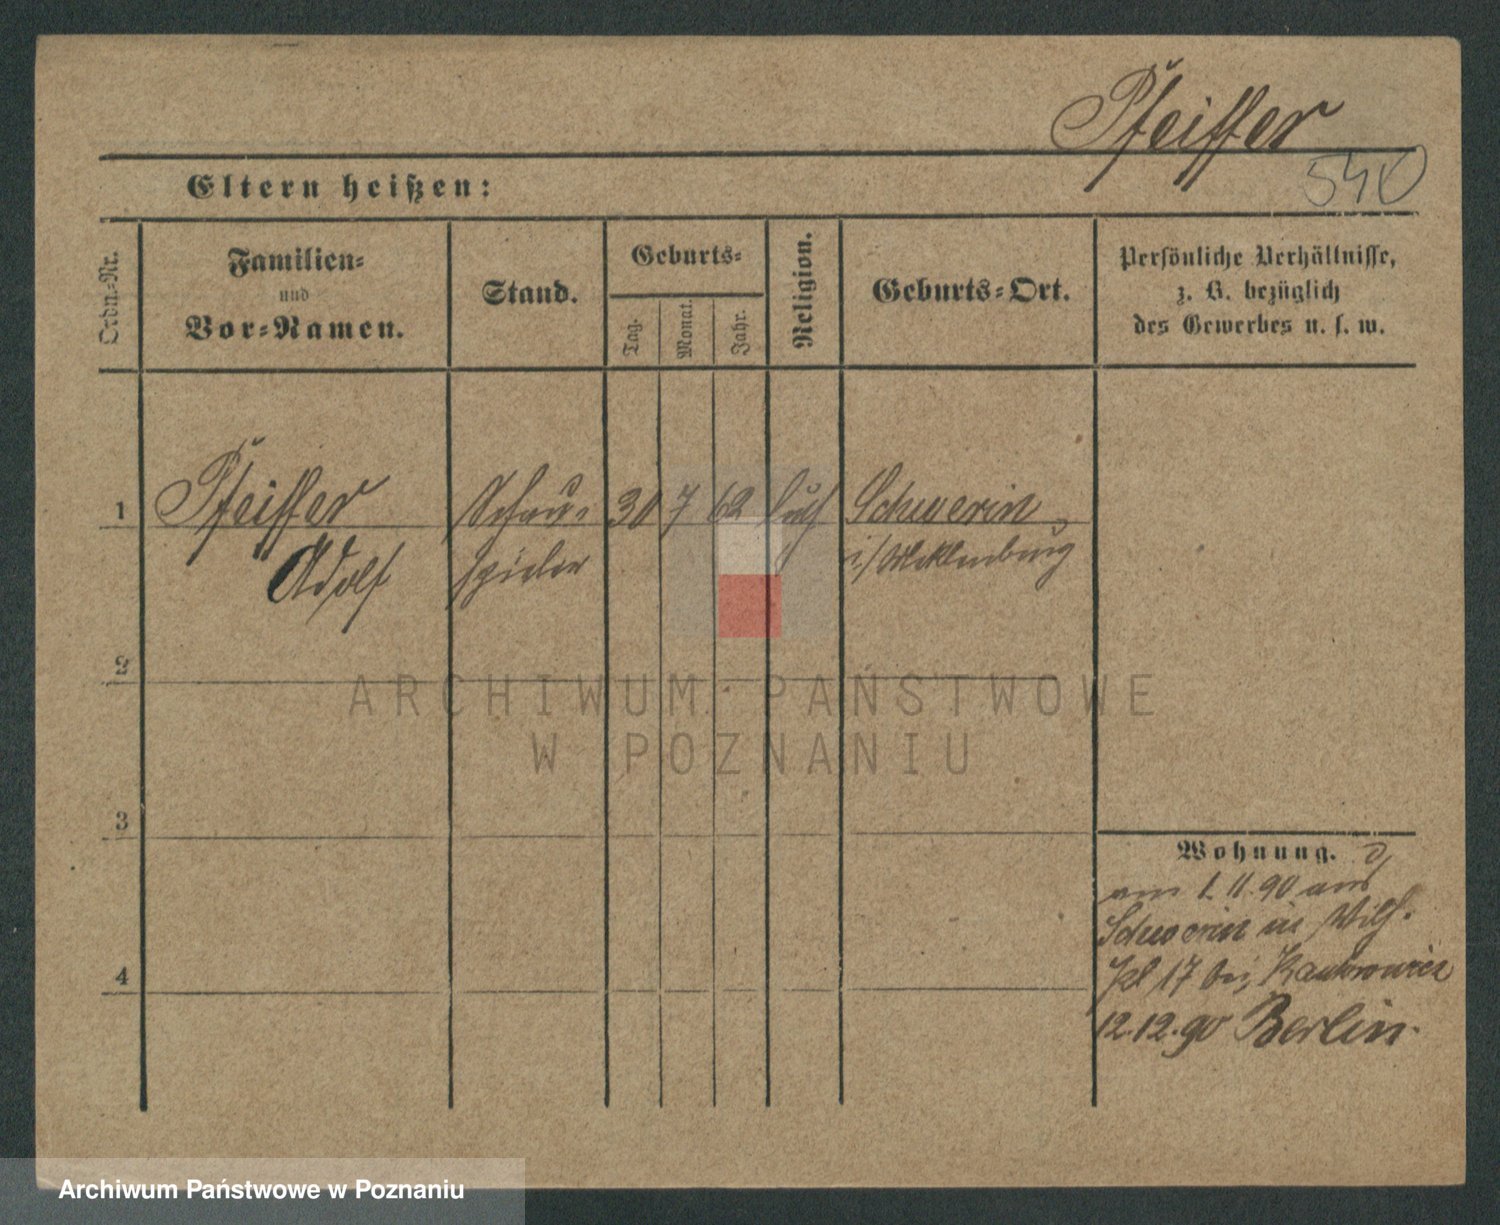 Pfeiffer
540
Eltern heißen:
Ordn.-Nr.
Familien-
und
Vor-Namen.
Stand.
Geburts-
Tag.
Monat.
Jahr.
Religion.
Geburts-Ort.
Persönliche Verhältnisse,
z. B. bezüglich
des Gewerbes u. s. w.
1 Pfeiffer Schau- 30 7 62 luth Schwerin
Adolf spieler i/Mecklenburg
2
3
4
Wohnung.
am 1. 11. 90 aus
Schwerin in Wilh.
Pl 17 bei
12.12.90 Berlin.
ARCHIWUM PAŃSTWOWE
W POZNANIU
Archiwum Państwowe w Poznaniu